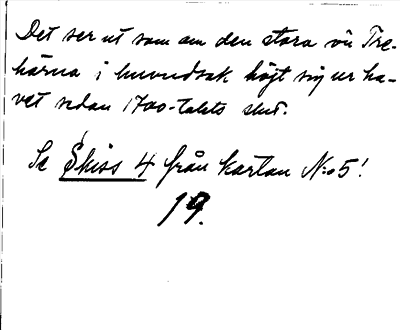 Det ser ut som om den stora ön Tre-
kärna i huvudsak höjt sig ur ha-
vet sedan 1700-talets slut.
Se Skiss 4 från kartan N:o 5!
19.